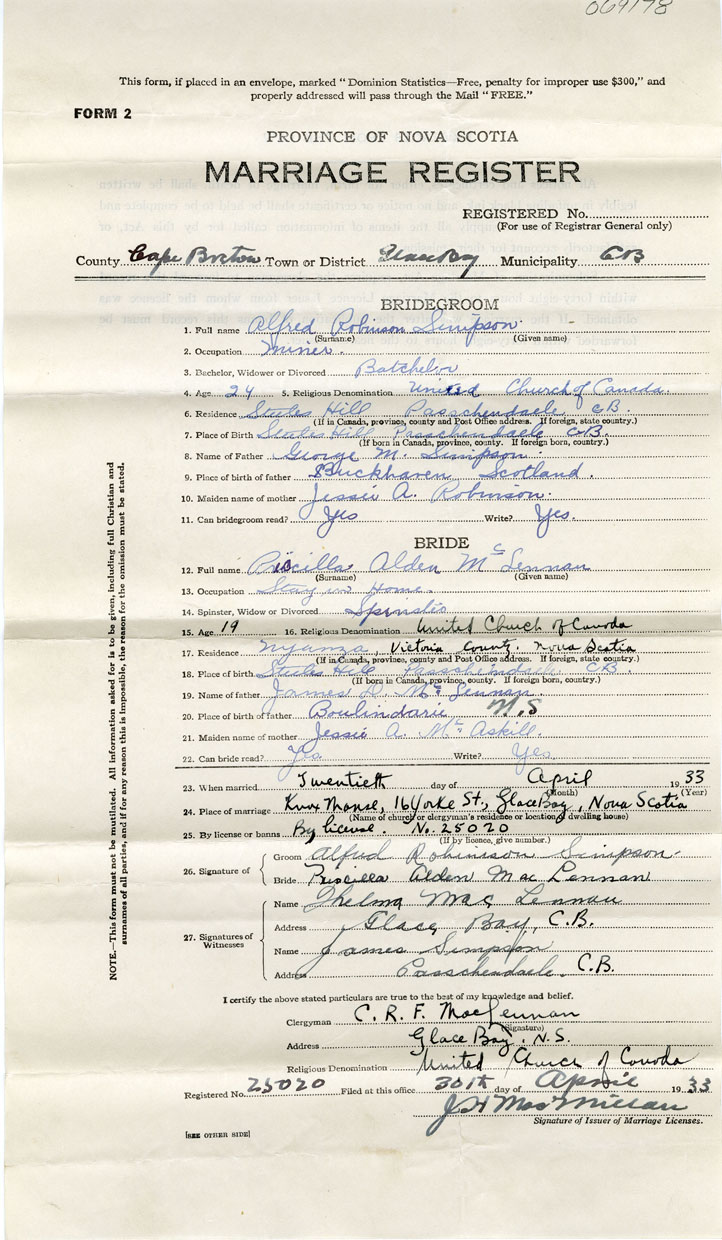 069178
This form, if placed in an envelope, marked "Dominion Statistics—Free, penalty for improper use $300," and
properly addressed will pass through the Mail "FREE."
FORM 2
PROVINCE OF NOVA SCOTIA
MARRIAGE REGISTER
REGISTERED No.
(For use of Registrar General only)
County Cape Breton Town or District Glace Bay Municipality CB
BRIDEGROOM
1. Full name Alfred Robinson Simpson.
(Surname) (Given name)
2. Occupation Miner.
3. Bachelor, Widower or Divorced Batchelor
4. Age 24 5. Religious Denomination United Church of Canada.
6. Residence Steeles Hill Passchendaele CB.
(If in Canada, province, county and Post Office address. If foreign, state country.)
7. Place of Birth Steeles Hill Passchendaele CB.
(If born in Canada, province, county. If foreign, country.)
8. Name of Father George M. Simpson.
9. Place of birth of father Buckhaven Scotland.
10. Maiden name of mother Jessie A. Robinson.
11. Can bridegroom read? Yes Write? Yes.
BRIDE
12. Full name Priscilla Alden McLennan
(Surname) (Given name)
13. Occupation Stay in Home.
14. Spinster, Widow or Divorced Spinster
15. Age 19 16. Religious Denomination United Church of Canada
17. Residence Nyanza, Victoria County. Nova Scotia
(If in Canada, province, county and Post Office address. If foreign, state country.)
18. Place of birth Steeles Hill Passchendaele CB.
(If born in Canada, province, county. If foreign, country.)
19. Name of father James D. McLennan.
20. Place of birth of father Boulindarie N.S
21. Maiden name of mother Jessie A. McAskill.
22. Can bride read? Yes Write? Yes.
23. When married Twentieth day of April 1933
(Month) (Year)
24. Place of marriage Knox Manse, 16 Yorke St., Glace Bay, Nova Scotia
(Name of church or clergyman's residence or location of dwelling house)
25. By license or banns By license. No. 25020
(If by licence, give number.)
26. Signature of Groom Alfred Robinson Simpson
Bride Priscilla Alden Mac Lennan
27. Signatures of Witnesses Name Thelma Mac Lennan
Address Glace Bay, C.B.
Name James Simpson
Address Passchendaele. C.B.
I certify the above stated particulars are true to the best of my knowledge and belief.
Clergyman C. R. F. MacLennan
(Signature)
Address Glace Bay, N.S.
Religious Denomination United Church of Canada
Registered No. 25020 Filed at this office 30th day of April 1933
J H MacMillan
Signature of Issuer of Marriage Licenses.
[SEE OTHER SIDE]
NOTE.—This form must not be mutilated. All information asked for is to be given, including full Christian and
surnames of all parties, and if for any reason this is impossible, the reason for the omission must be stated.